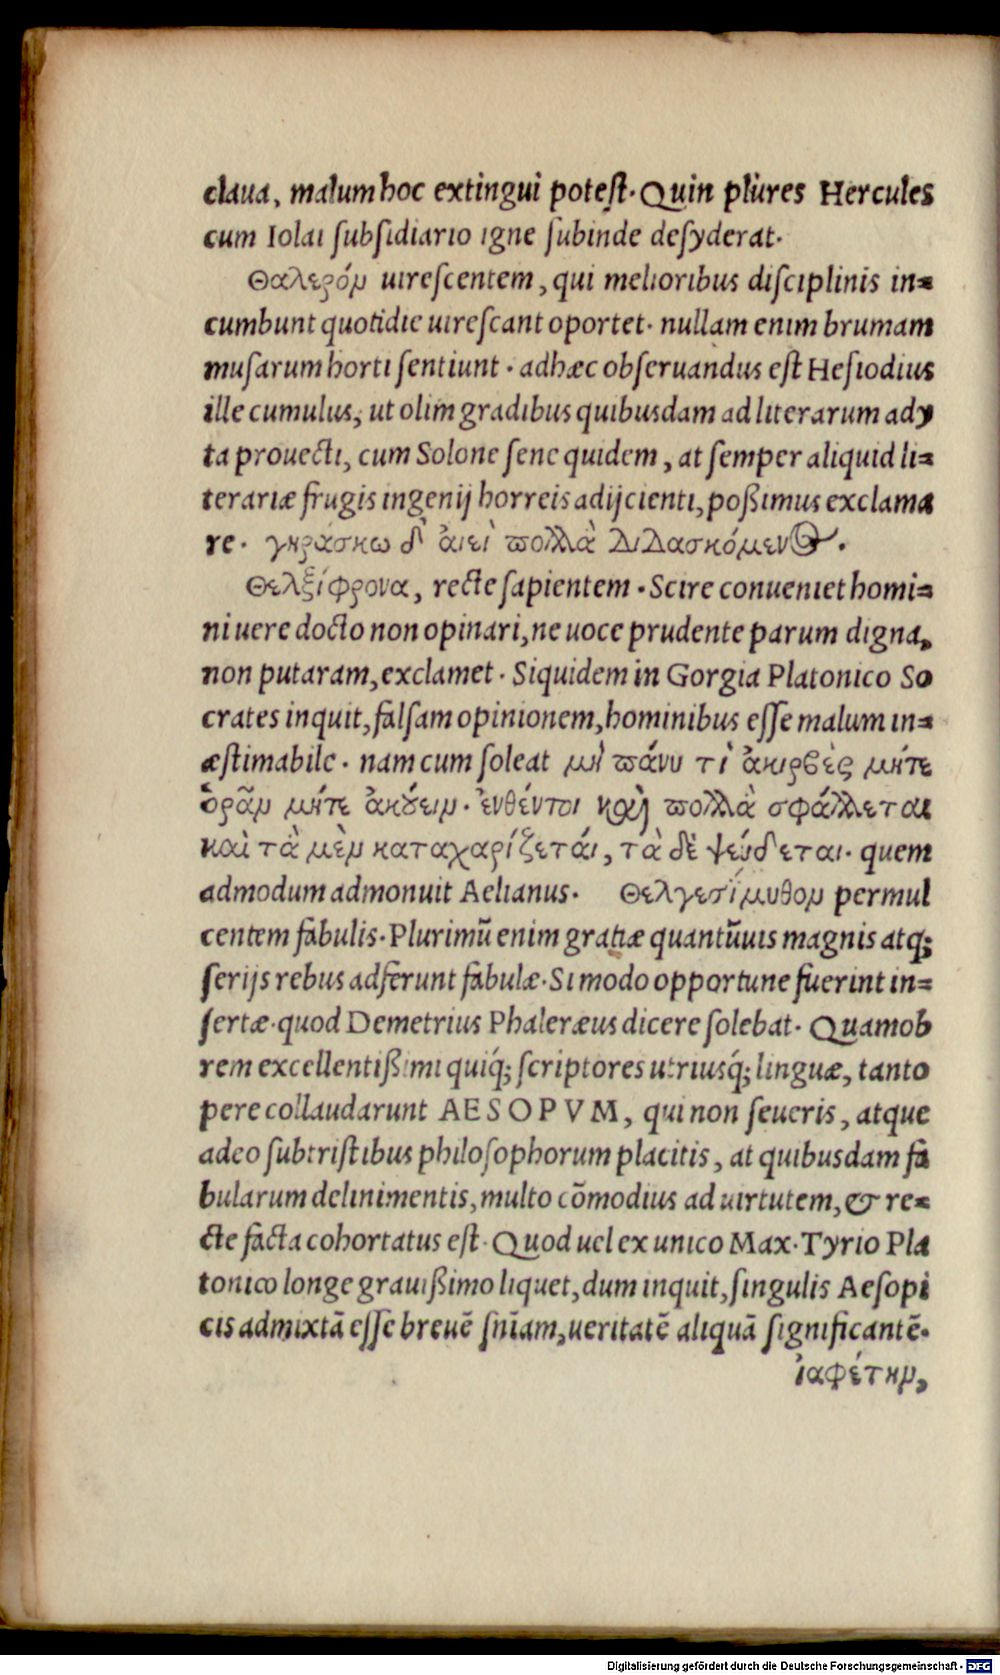 claua, malum hoc extingui potest. Quin plures Hercules
cum Iolai subsidiario igne subinde desyderat.
Θαλερόν uirescentem, qui melioribus disciplinis in=
cumbunt quotidie uirescant oportet. nullam enim brumam
musarum horti sentiunt. adhæc obseruandus est Hesiodius
ille cumulus, ut olim gradibus quibusdam ad literarum ady
ta prouecti, cum Solone sene quidem, at semper aliquid li=
terariæ frugis ingenij horreis adijcienti, poßimus exclama
re. γηράσκω δ' ἀιεὶ πολλὰ διδασκόμενος.
Θελξίφρονα, recte sapientem. Scire conueniet homi=
ni uere docto non opinari, ne uoce prudente parum digna,
non putaram, exclamet. Siquidem in Gorgia Platonico So
crates inquit, falsam opinionem, hominibus esse malum in=
æstimabile. nam cum soleat μὴ πάνυ τὶ ἀκιρβὲς μήτε
ὁρᾶν μήτε ἀκούειν. ἐνθέντοι καὶ πολλὰ σφάλλεται
καὶ τὰ μὲν καταχαρίζετάι, τὰ δὲ ψεύδεται. quem
admodum admonuit Aelianus. Θελγεσίμυθον permul
centem fabulis. Plurimũ enim gratiæ quantũuis magnis atq;
serijs rebus adferunt fabulæ. Si modo opportune fuerint in=
sertæ. quod Demetrius Phaleræus dicere solebat. Quamob
rem excellentißimi quiq́; scriptores utriusq́; linguæ, tanto
pere collaudarunt AESOPVM, qui non seueris, atque
adeo subtristibus philosophorum placitis, at quibusdam fa
bularum delinimentis, multo cõmodius ad uirtutem, & re=
cte facta cohortatus est. Quod uel ex unico Max. Tyrio Pla
tonico longe grauißimo liquet, dum inquit, singulis Aesopi
cis admixtã esse breuẽ sñiam, ueritatẽ aliquã significantẽ.
ἰαφέτην,
Digitalisierung gefördert durch die Deutsche Forschungsgemeinschaft - DFG